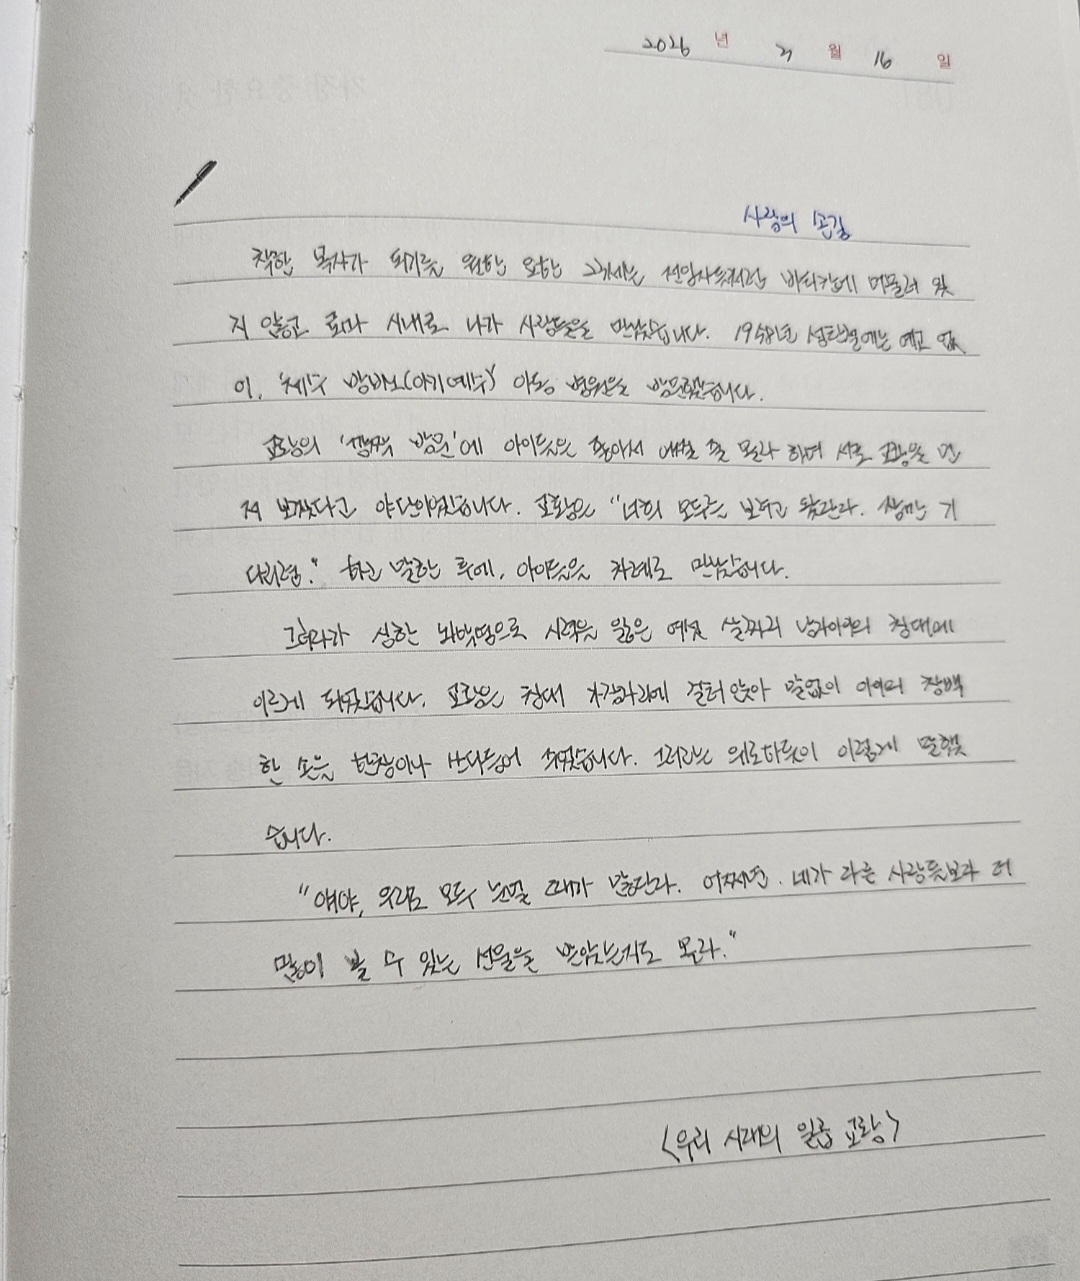 2026 년 3 월 16 일
사랑의 손길
착한 목자가 되기를 원한 요한 23세는 선임자들처럼 바티칸에 머물러 있
지 않고 로마 시내로 나가 사람들을 만났습니다. 1958년 성탄절에는 예고 없
이, 제수 밤비노(아기예수) 아동 병원을 방문했습니다.
교황의 '깜짝 방문'에 아이들은 좋아서 어쩔 줄 몰라 하며 서로 교황을 먼
저 보겠다고 야단이었습니다. 교황은 "너희 모두를 보려고 왔단다. 잠깐만 기
다리렴." 하고 말한 후에, 아이들을 차례로 만났습니다.
그러다가 심한 뇌막염으로 시력을 잃은 예닐 살짜리 남자아이의 침대에
이르게 되었습니다. 교황은 침대 가장자리에 걸터앉아 말없이 아이의 창백
한 손을 한참이나 쓰다듬어 주었습니다. 그러고는 위로하듯이 이렇게 말했
습니다.
"얘야, 우리는 모두 눈멀 때가 많단다. 어쩌면, 네가 다른 사람들보다 더
많이 볼 수 있는 선물을 받았는지도 몰라."
<우리 시대의 일곱 교황>